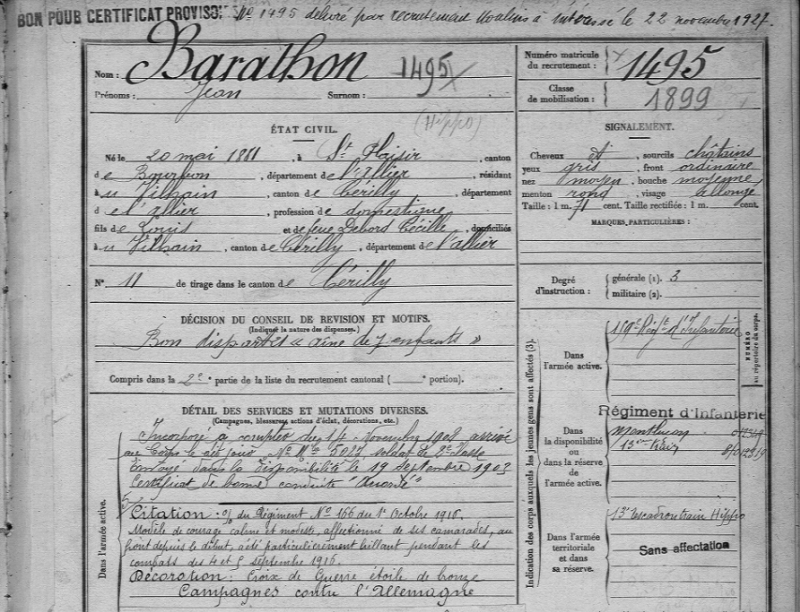 BON POUR CERTIFICAT PROVISO N° 1495 délivré par recrutement Moulins à intéressé le 22 novembre 1927.
Nom : Barathon 1495
Prénoms : Jean Surnom :
(Hippo)
Numéro matricule du recrutement : 1495
Classe de mobilisation : 1899
ÉTAT CIVIL.
Né le 20 mai 1881 à St Plaisir canton
de Bourbon département de l'Allier résidant
à u Vilhain canton de Cérilly département
de l'allier profession de domestique
fils de Louis et de feue Debord Cécille domiciliés
à u Vilhain, canton de Cérilly, département de l'allier
N° 11 de tirage dans le canton de Cérilly
SIGNALEMENT.
Cheveux et sourcils châtains
yeux gris front ordinaire
nez moyen bouche moyenne
menton rond visage allongé
Taille : 1 m. 71 cent. Taille rectifiée : 1 m. cent.
MARQUES PARTICULIÈRES :
Degré d'instruction : générale (1). 3
militaire (2).
DÉCISION DU CONSEIL DE REVISION ET MOTIFS.
(Indiquer la nature des dispenses.)
Bon aîné de 7 enfants »
Compris dans la 2e partie de la liste du recrutement cantonal ( portion).
DÉTAIL DES SERVICES ET MUTATIONS DIVERSES.
(Campagnes, blessures, actions d'éclat, décorations, etc.)
Dans l'armée active.
Incorporé à compter du 14 novembre 1902 arrivé
au Corps le soldat de 2e classe
Envoyé dans la disponibilité le 19 Septembre 1903
Certificat de bonne conduite "Accordé"
Citation : du Régiment N° 166 du 1er Octobre 1916.
Modèle de courage calme et modeste, affectionné de ses camarades, au
front depuis le début, a été particulièrement brillant pendant les
combats des 4 et 5 Septembre 1916.
Décoration : Croix de Guerre étoile de bronze
Campagnes contre l'Allemagne
Indication des corps auxquels les jeunes gens sont affectés (3).
NUMÉRO au répertoire du corps.
Dans l'armée active.
Régt d'Infanterie
Dans la disponibilité ou dans la réserve de l'armée active.
Régiment d'Infanterie
Montluçon
Dans l'armée territoriale et dans sa réserve.
13e Escadron train Hippo
Sans affectation